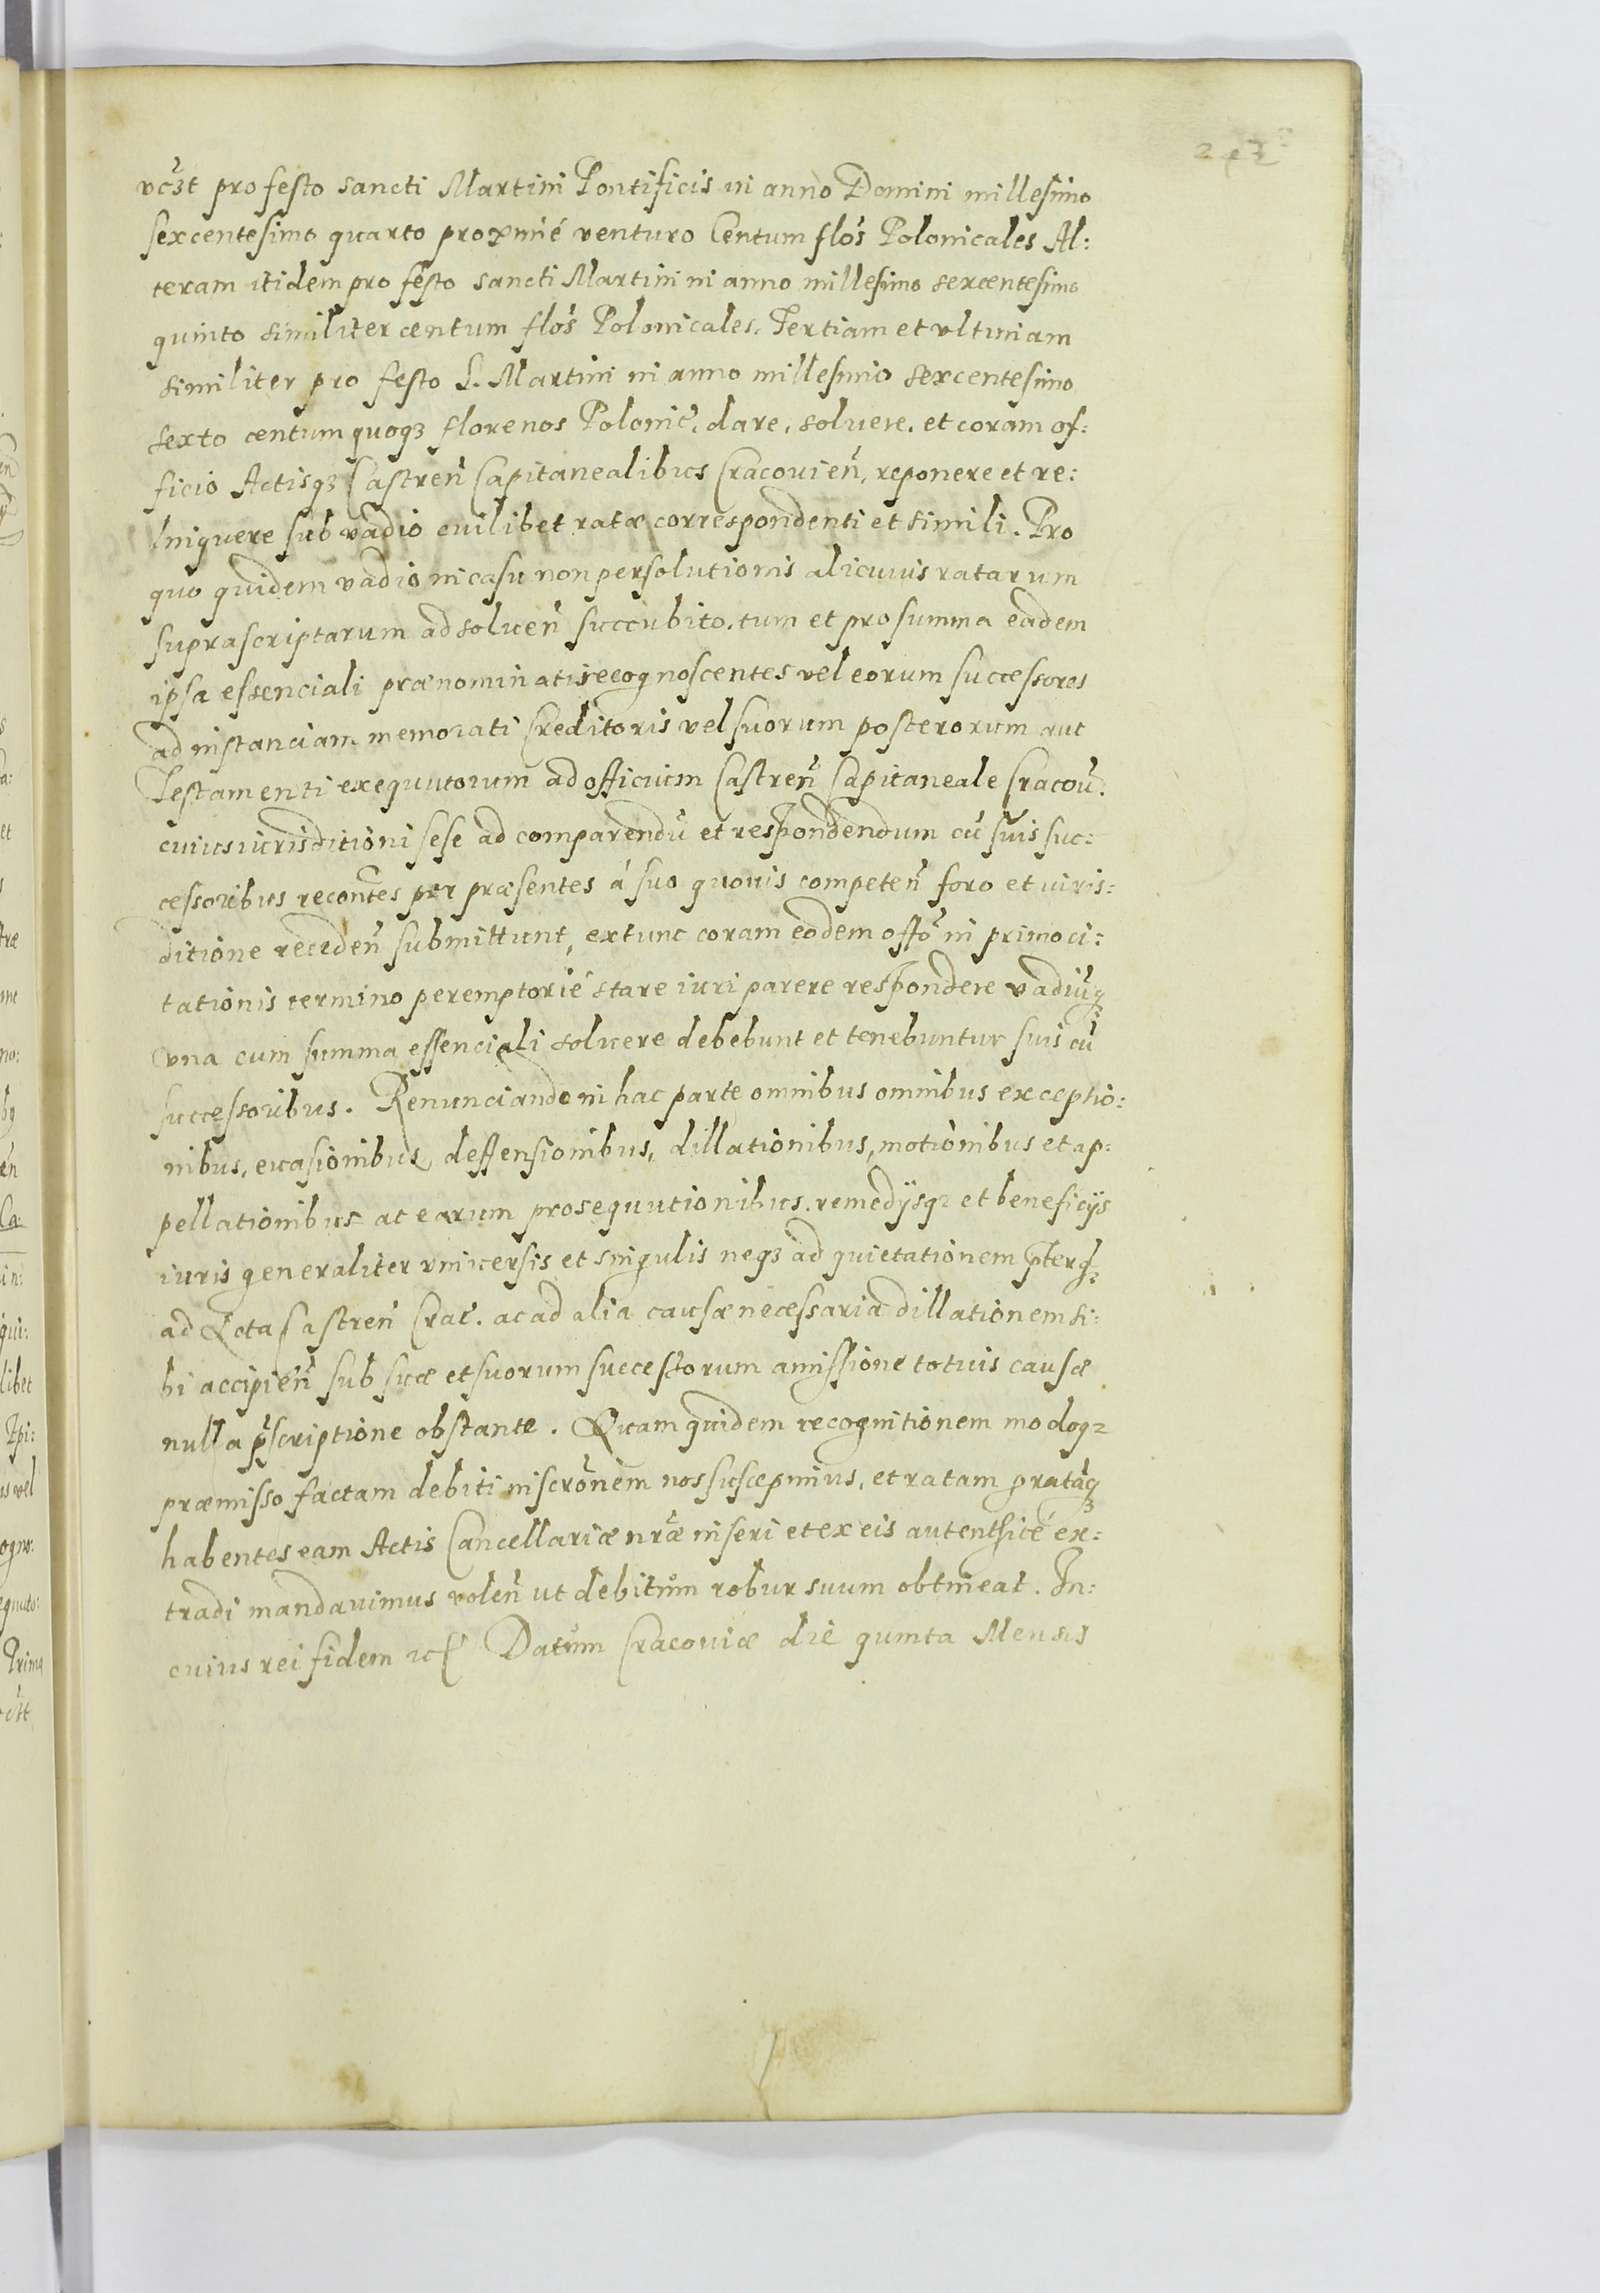 vcꝫt pro festo sancti Martini Pontificis in anno Domini millesimo
sexcentesimo quarto proximé venturo Centum flōs Polonicales Al:
teram itidem pro festo sancti Martini in anno millesimo sexcentesimo
quinto similiter centum flōs Polonicales. Tertiam et vltimam
similiter pro festo S. Martini in anno millesimo sexcentesimo
sexto centum quoqꝫ florenos Polonic̄, dare, soluere, et coram of:
ficio Actisqꝫ Castren̄ Capitanealibus Cracouien̄, reponere et re:
linquere sub vadio cuilibet ratæ correspondenti et simili. Pro
quo quidem vadio in casu non persolutionis alicuius ratarum
suprascriptarum ad soluen̄ succubito, tum et pro summa eadem
ipsa essenciali prænominati recognoscentes vel eorum successores
ad instanciam memorati Creditoris vel suorum posterorum aut
Testamenti exequutorum ad officium Castren̄ Capitaneale Cracou̅.
cuius iurisditioni sese ad comparendū et respondendum cū suis suc:
cessoribus recon̄tes per præsentes á suo quouis competen̄ foro et iuris:
ditione receden̄ submittunt, extunc coram eodem offō in primo ci:
tationis termino peremptorié stare iuri parere respondere vadiūqꝫ
vna cum summa essenciali soluere debebunt et tenebuntur suis cū
successoribus. Renunciando in hac parte omnibus omnibus exceptio:
nibus, euasionibus, deffensionibus, dillationibus, motionibus et ap:
pellationibus ac earum prosequutionibus, remedijsqꝫ et beneficijs
iuris generaliter vniuersis et singulis neqꝫ ad quietationem p̄terqꝫ
ad Acta Castren̄ Crac̄. ac ad alia causæ necessaria dillationem si:
bi accipien̄ sub suæ et suorum successorum amissione totius causæ
nulla p̄scriptione obstante. Quam quidem recognitionem modoqꝫ
præmisso factam debiti inscrōnem nos suscepimus, et ratam gratāqꝫ
habentes eam Actis Cancellariæ nrǣ inseri et ex eis autenthicé ex:
tradi mandauimus volen̄ ut debitum robur suum obtineat. In:
cuius rei fidem etc̄ Datum Cracouiæ die quinta Mensis